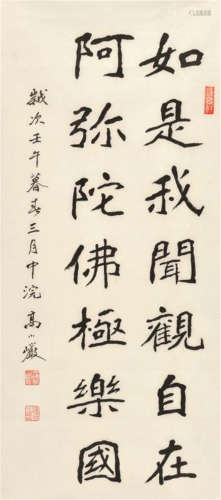 如是我聞觀自在
阿弥陀佛極樂國
歲次壬午暮春三月中浣高小巖